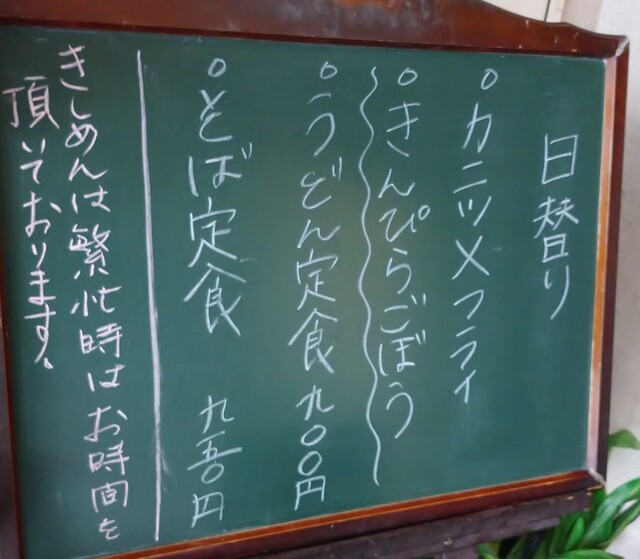 日替り
○カニツメフライ
○きんぴらごぼう
○うどん定食 九〇〇円
○そば定食 九五〇円
きしめんは繁忙時はお時間を
頂いております。